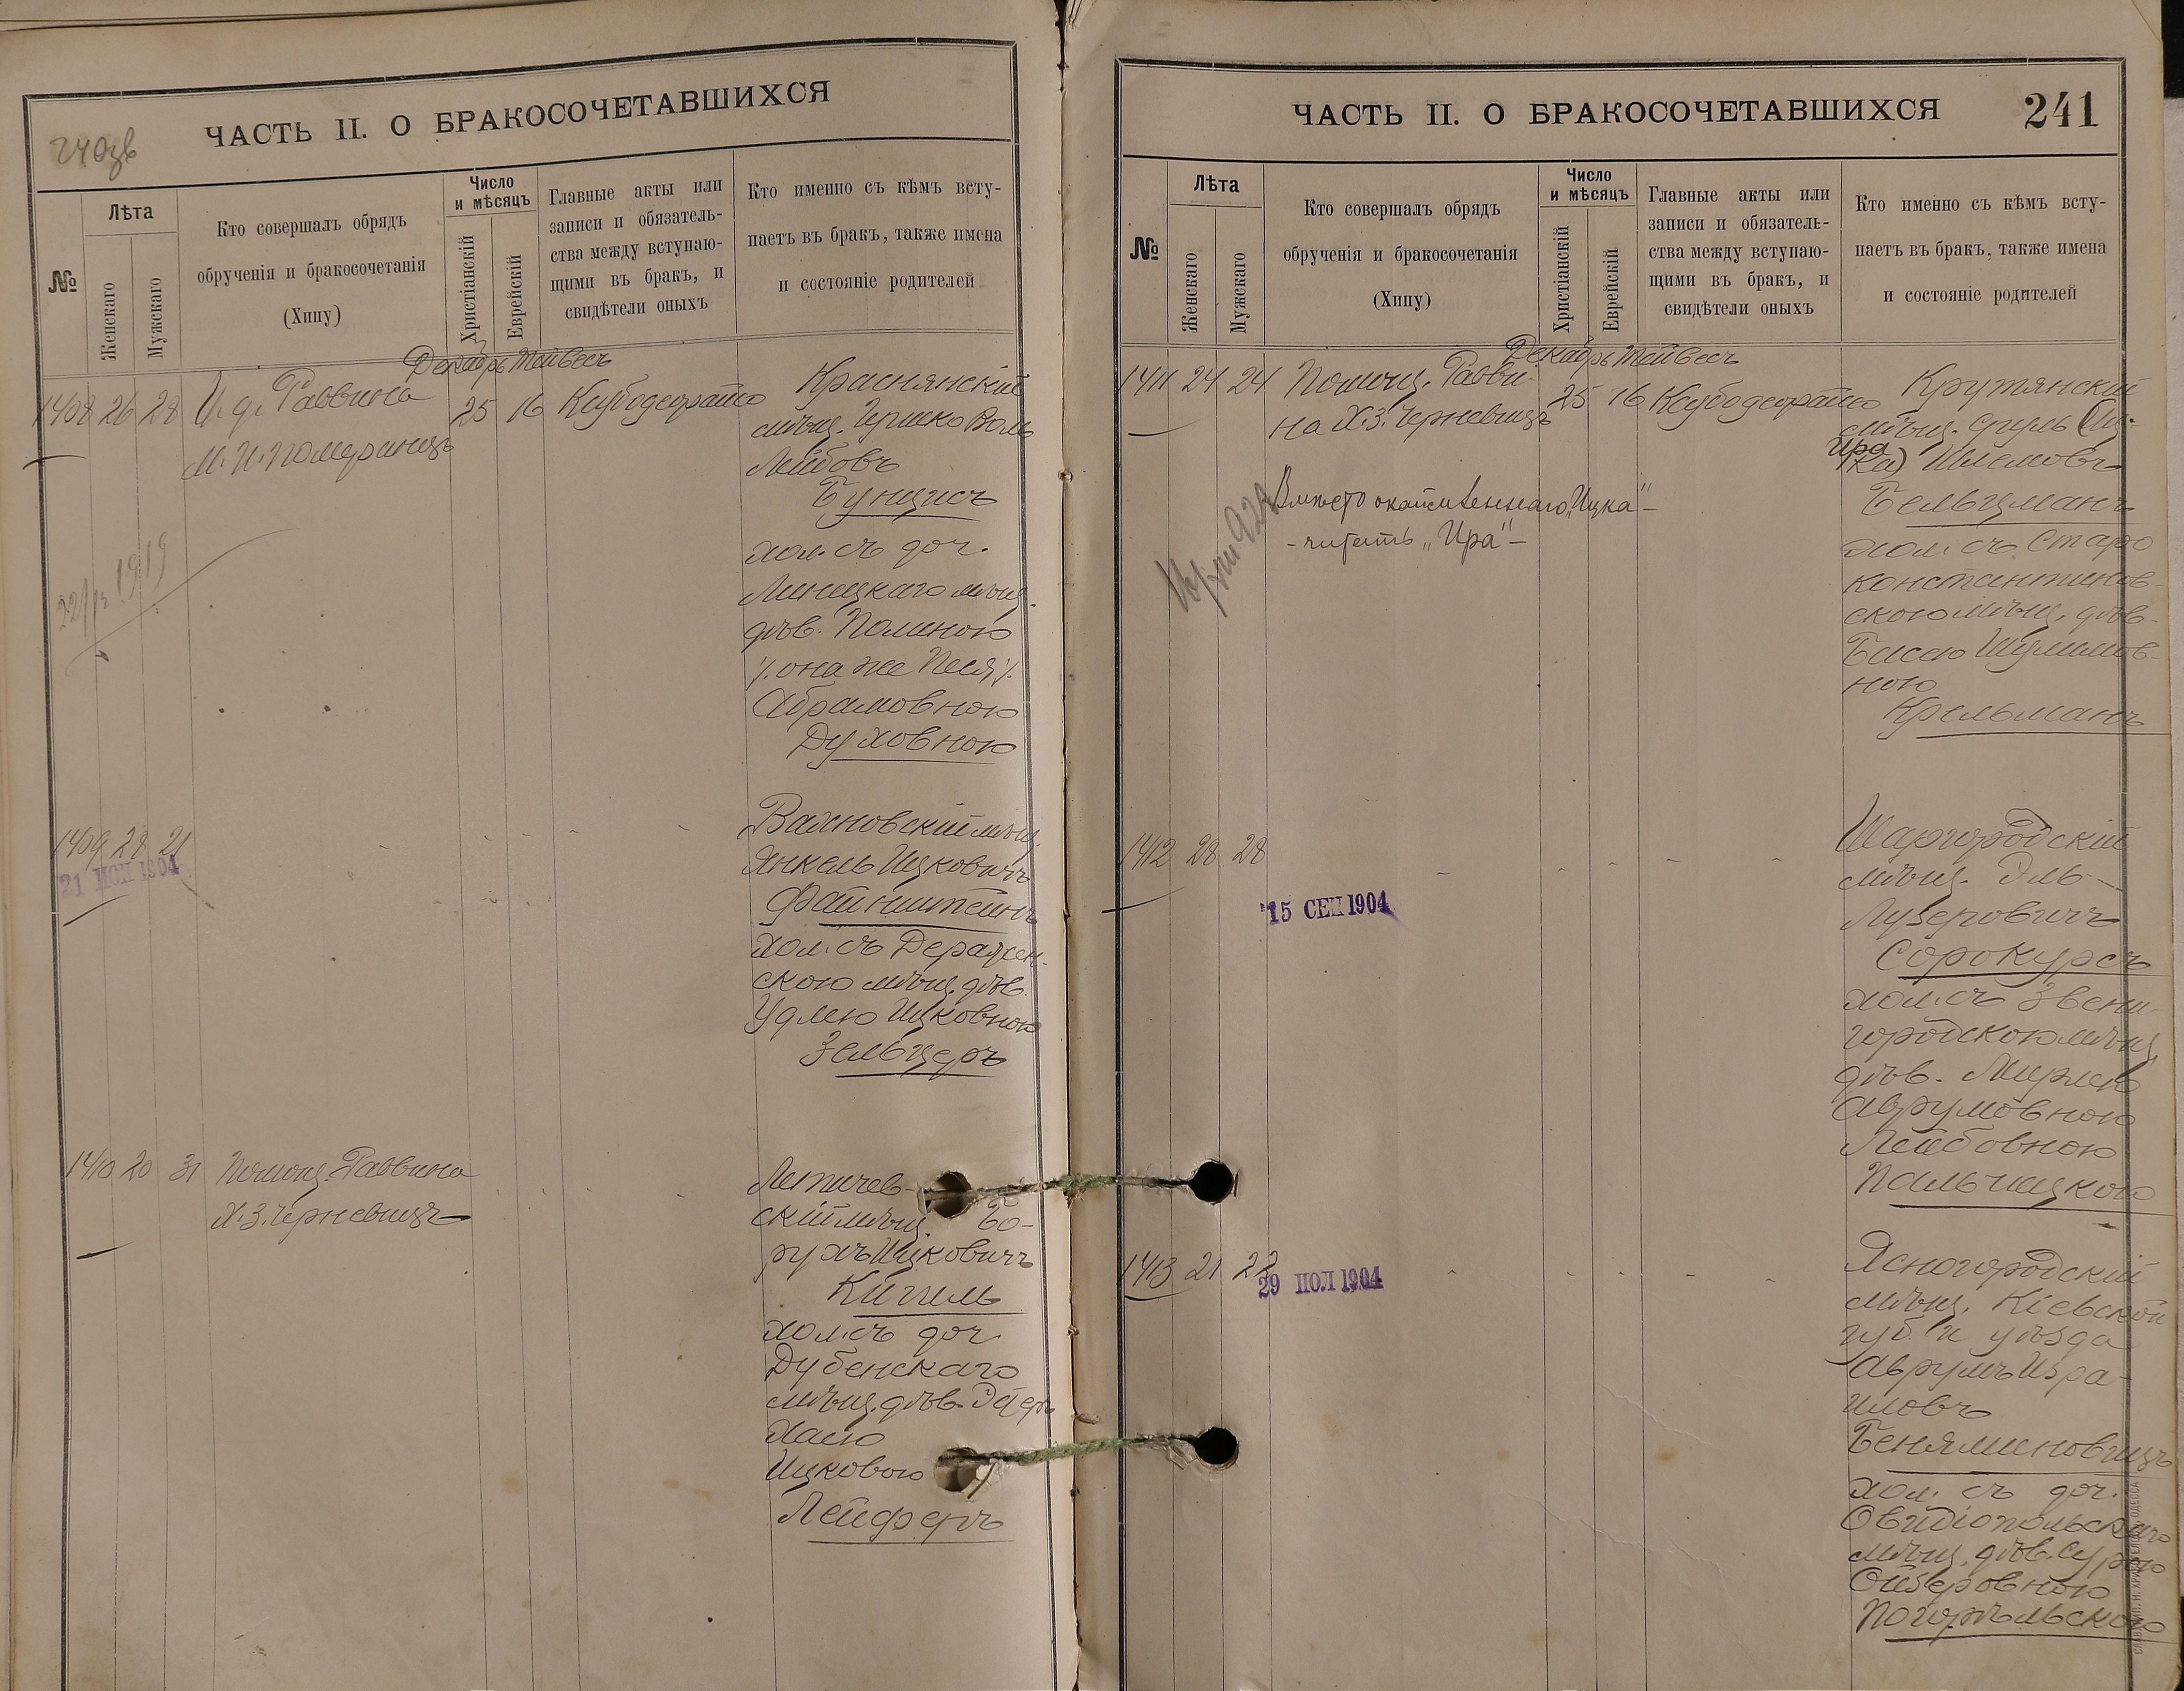 ЧАСТЬ II. О БРАКОСОЧЕТАВШИХСЯ
№
Лѣта
Женскаго
Мужскаго
Кто совершалъ обрядъ
обрученія и бракосочетанія
(Хипу)
Число
и мѣсяцъ
Христіанскій
Еврейскій
Главные акты или
записи и обязатель-
ства между вступаю-
щими въ бракъ, и
свидѣтели оныхъ
Кто именно съ кѣмъ всту-
паетъ въ бракъ, также имена
и состояніе родителей
Декабрь Тейвесъ
1408 26 28 И. д. Раввина 25 16
М. И. Померанецъ
Краснянскій
мѣщ. Гершко Воль
Лейбовъ
Бунцисъ
хол. съ доч.
Линецкаго мѣщ.
дѣв. Полиною
/. она же Песя ./
Абрамовною
Духовною
1409 28 21
21 ИОН 1904
Вахновскій мѣщ.
Янкель Ицковичъ
Файнштейнъ
хол. съ Деражен-
скою мѣщ. дѣв.
Удлею Ицковною
Зельцеръ
1410 20 31 Помощ. Раввина
Х. З. Черневицъ
Летичев-
скій мѣщ. Бо-
рухъ Ицковичъ
Кигель
хол. съ доч.
Дубенскаго
мѣщ. дѣв.
Хаею
Ицковою
Лейферъ
ЧАСТЬ II. О БРАКОСОЧЕТАВШИХСЯ
241
№
Лѣта
Женскаго
Мужскаго
Кто совершалъ обрядъ
обрученія и бракосочетанія
(Хипу)
Число
и мѣсяцъ
Христіанскій
Еврейскій
Главные акты или
записи и обязатель-
ства между вступаю-
щими въ бракъ, и
свидѣтели оныхъ
Кто именно съ кѣмъ всту-
паетъ въ бракъ, также имена
и состояніе родителей
Декабрь Тейвесъ
1411 24 24 Помощ. Равви- 25 16
на Х. З. Черневицъ
Вмѣсто „Ицка"-
- читать „Ира"-
Крутянскій
мѣщ. Сруль (Иц-
Ира
ка) Шлемовъ
Бельцманъ
хол. съ Старо
константинов-
скою мѣщ. дѣв.
Басею Шулимов-
ною
Крельманъ
1412 28 28
15 СЕН 1904
Шаргородскій
мѣщ. Эль
Лузеровичъ
Сорокурсъ
хол. съ Звени-
городскою мѣщ.
дѣв. Мирлею
Аврумовною
Лейбовною
Пальчицкою
1413 21 22
29 ИОЛ 1904
Ясногородскій
мѣщ. Кіевской
губ. и уѣзда
Аврумъ Изра-
иловъ
Беняминовицъ
хол. съ доч.
Овидіопольскаго
мѣщ. дѣв. Сурою
Ойзеровною
Погорѣльскою